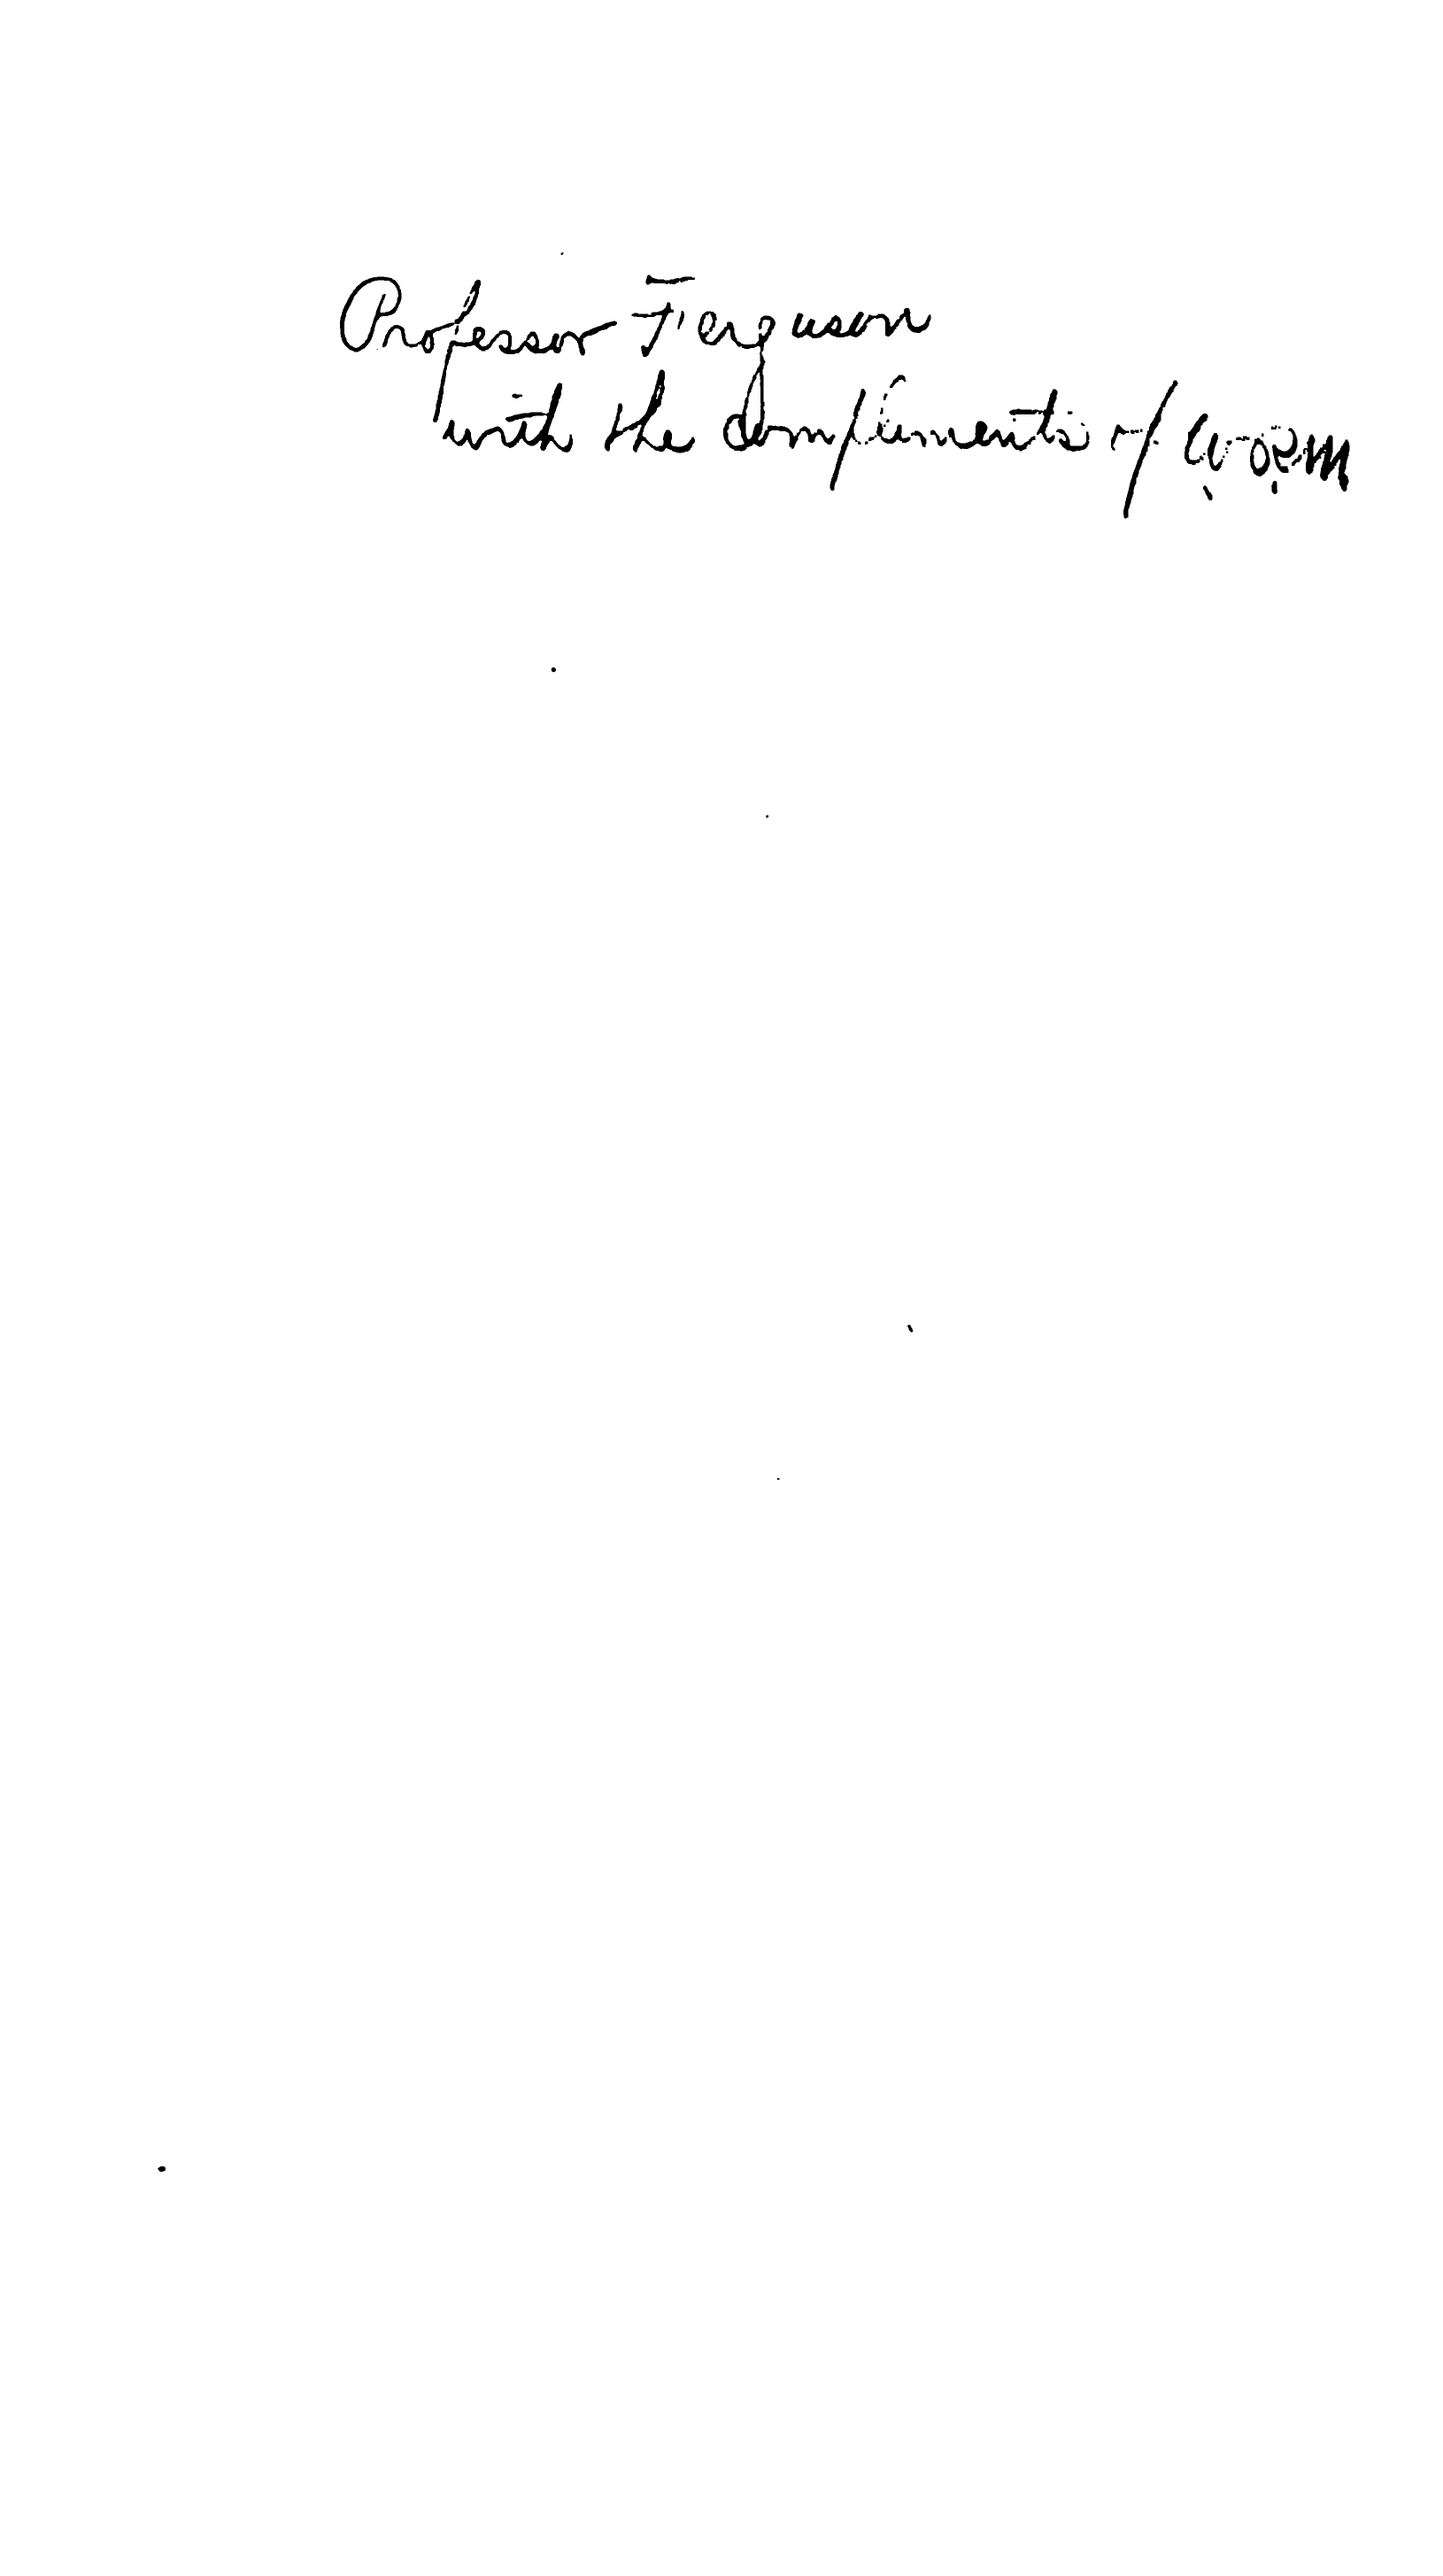 Professor Ferguson
with the compliments of